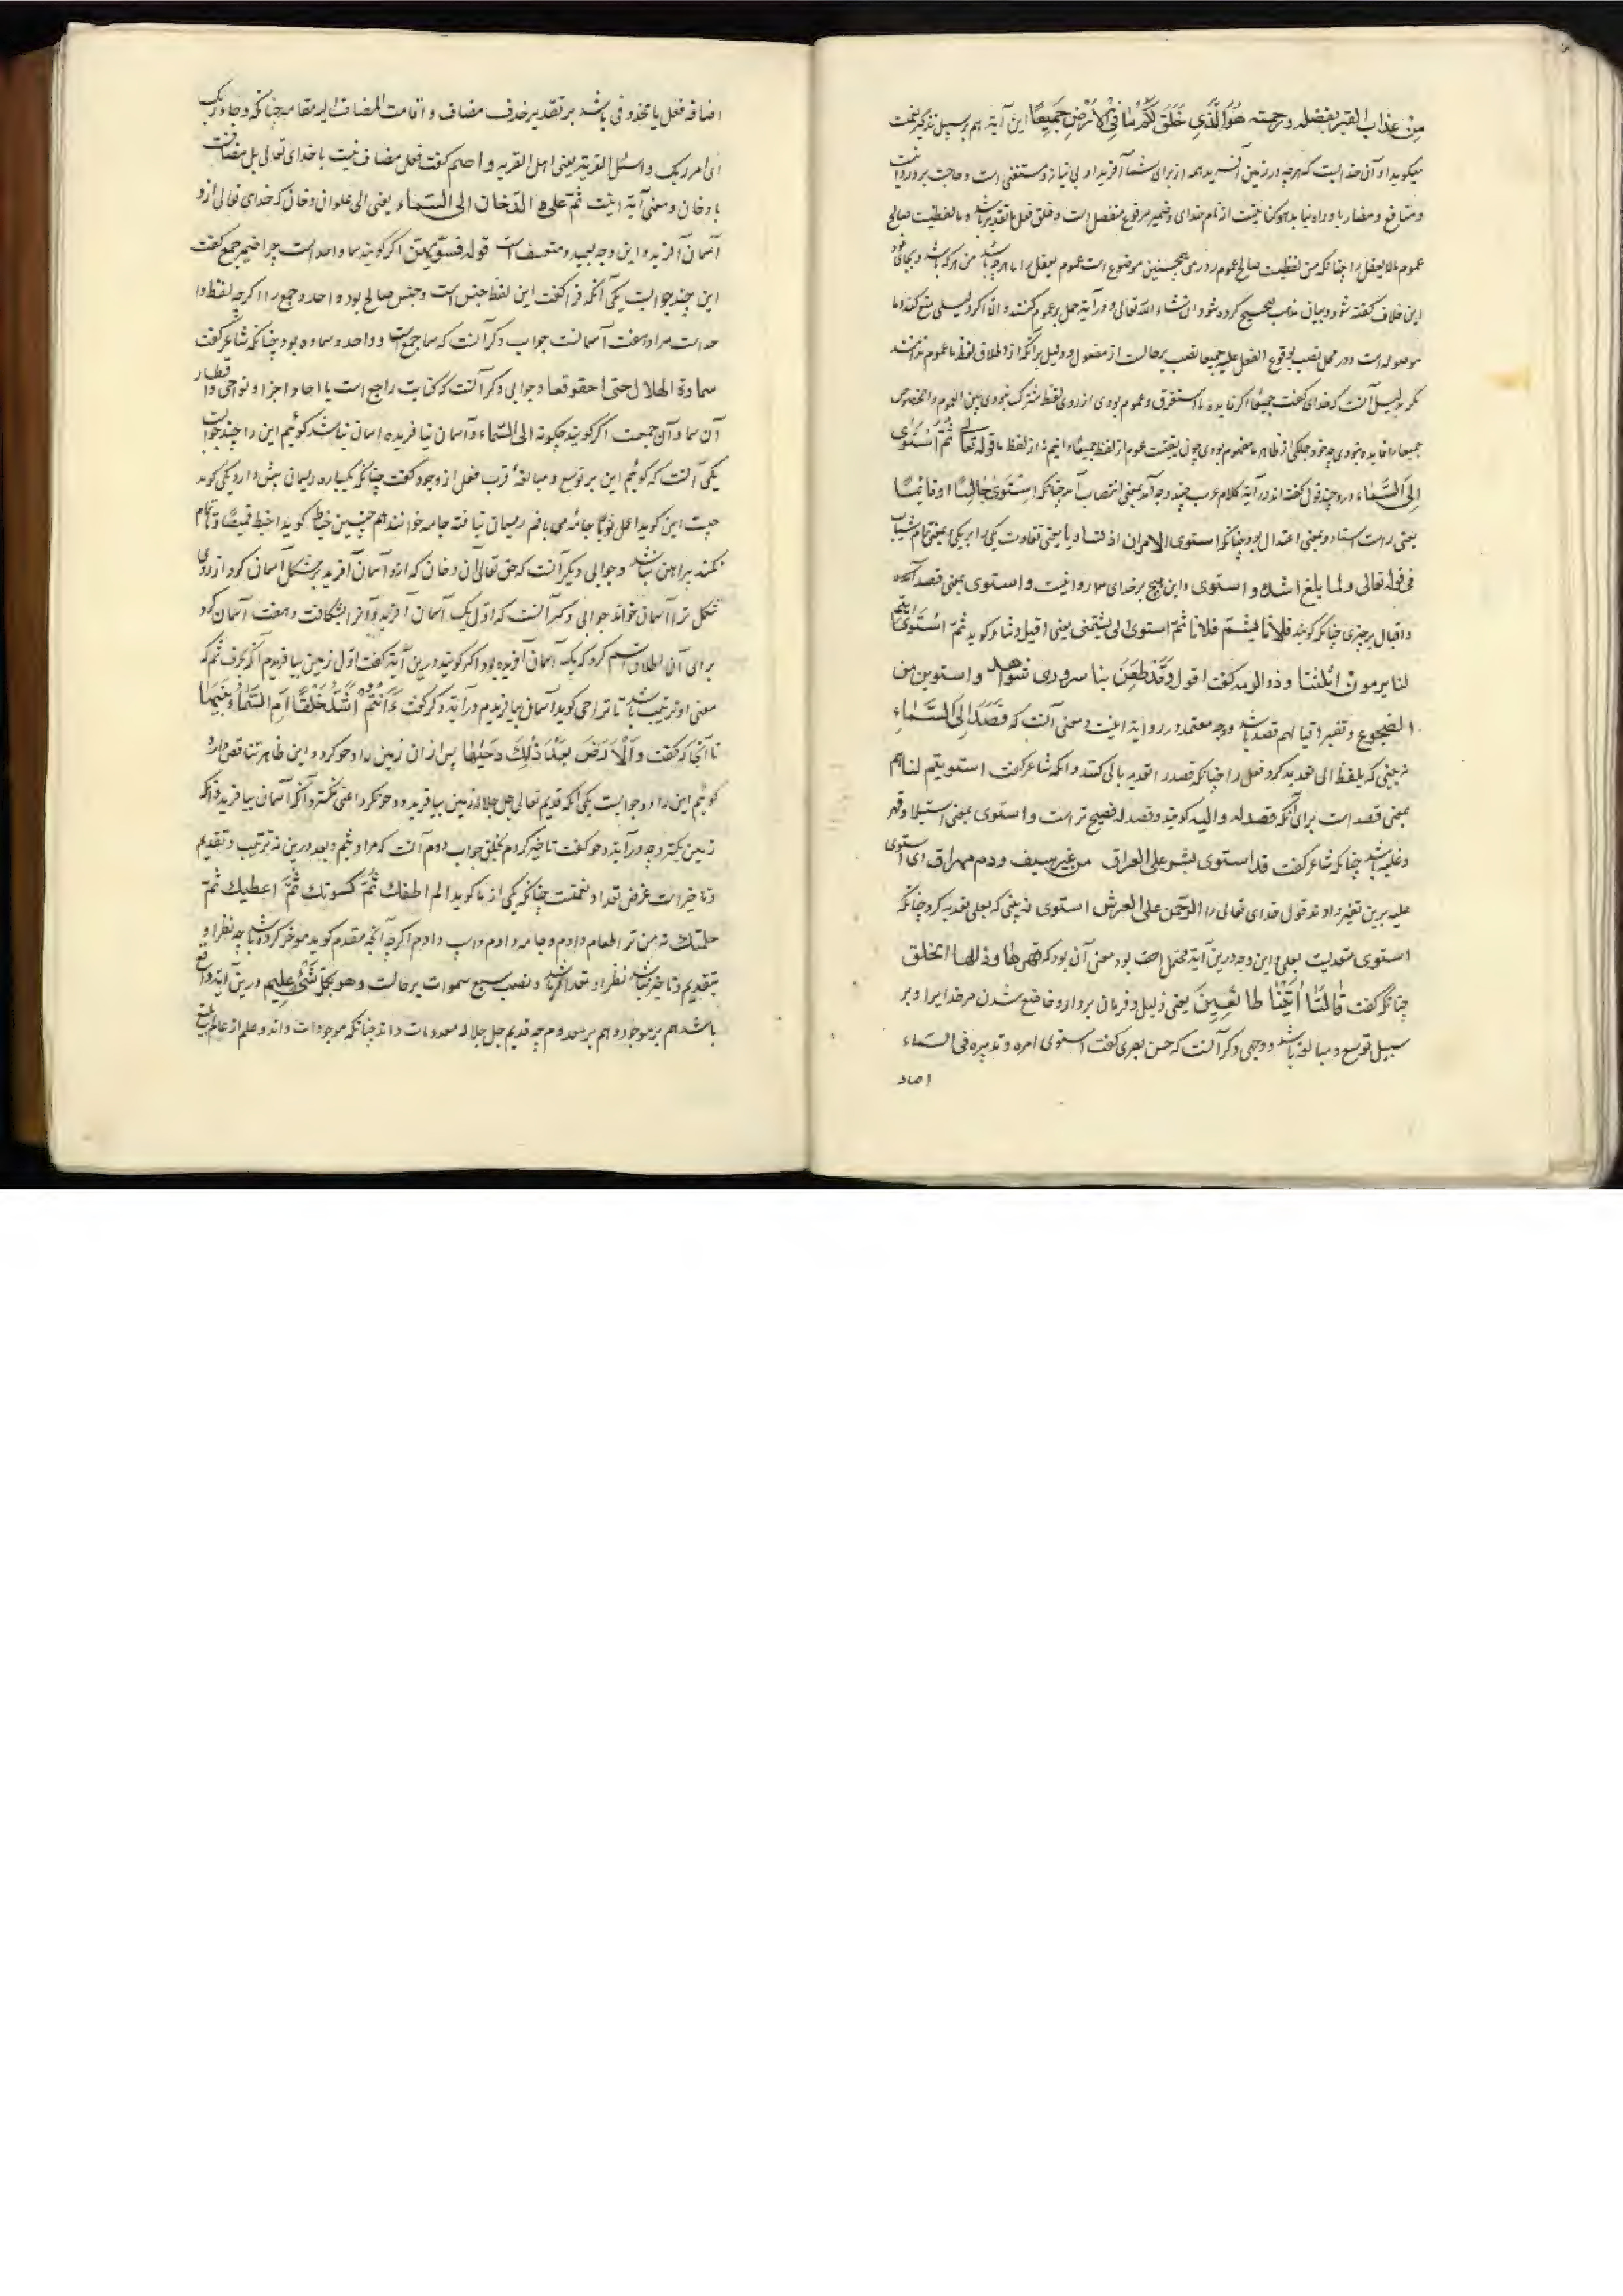 مِنْ عذاب القبر بفضله ورحمته هُوَ الَّذِي خَلَقَ لَكُمْ مَا فِي الْأَرْضِ جَمِيعًا این آیة هم بر سبیل تذکیر نعمت
میکوید او آن خدالیست که هرچه در زمین آفریده همه از برای شما آفرید او بی نیاز و مستغنی است و حاجت بر و روا نیست
و منافع و مضار باو راه نیابد هو کنایتست از نام خدای و ضمیر مرفوع منفصل است و خلق فعل باشد و ما لفظیست صالح
عموم ما لا یعقل را چنانکه من لفظیست صالح عموم را موضوع است عموم یعقل را ما هرچه باشد من هرکه باشد و بجای خود
این خلاف کفته شود و بیان مذهب صحیح کرده شود ان شاء الله تعالی و در آیة حمل بر عموم کنند و الا اکر دلیلی منع کند ما
موصوله است و در محل نصب بوقوع الفعل علیه جمیعا نصب بر حالست از مفعول و دلیل برانکه از اطلاق لفظ ما عموم ندانند
مکر بدلیل آنست که خدای کفت جمیعًا اکر فایده ما استغراق و عموم بودی از روی لفظ مشترک نبودی بین العموم و الخصوص
جمیعا را فایده نبودی چه خود جملکی از ظاهر ما مفهوم بودی چون بحقیقت عموم از لفظ جمیعًا دانیم نه از لفظ ما قوله تعالی ثُمَّ اسْتَوَى
إِلَى السَّمَاءِ درو چند قول کفته اند در آیة کلام عرب چند وجه آمد بمعنی انتصاب آمد چنانکه استوى جالسًا او قائمًا
یعنی راست استاد و بمعنی اعتدال بود چنانکه استوی الامران اذ تساویا یعنی تفاوت یکی را بر یکی و بمعنی تمام شباب
فی قوله تعالی ولما بلغ اشده و استوی و این هیچ بر خدای روا نیست و استوی بمعنی قصد آمد
و اقبال بر چیزی چنانکه کویند فلانا یشتم فلانا ثم استوی الی یشتمنی یعنی اقبل و شاعر کوید ثم استوی
لنا یرمون اثلتنا و ذو الرمه کفت اقول وَقَدْ طَعَنَ بنا سروری شواهد و استوین من
الضجوع و تفسیر اقبالهم قصد باشد و وجه معتمد در روایة اینست و معنی آنست که قَصَدَ إِلَى السَّمَاءِ
نه بینی که بلفظ الی تعدیه کرد فعل را چنانکه قصد را تعدیه بالی کنند و انکه شاعر کفت استویتم لنا هم
بمعنی قصد است برای آنکه قصد له و الیه کویند و قصد له فصیح تر است و استوی بمعنی استیلا و قهر
و غلبه باشد چنانکه شاعر کفت قد استوی بشر علی العراق من غیر سیف ودم مهراق ای استوی
علیه برین تفسیر دادند قول خدای تعالی را الرَّحْمَن على العرش استوی نه بینی که بعلی تعدیه کرد چنانکه
استوی متعدیست بعلی و این وجه درین آیة محتمل است بود معنی آن بود که قهرها وذللها الخلق
چنانکه کفت قَالَتَا أَتَيْنَا طَائِعِينَ یعنی ذلیل و فرمان بردار و خاضع شدن مر خدایرا و بر
سبیل توسع و مبالغه باشد و وجهی دکر آنست که حسن بصری کفت استوی امره و تدبیره فی السماء
اضاف
اضافه فعل یا محذوفی باشد بر تقدیر حذف مضاف و اقامت المضاف الیه مقامه چنانکه و جاء ربک
ای امر ربک و اسئل القریة یعنی اهل القریه و اصم کفت فعل مضاف نیست با خدای تعالی بل مضافست
با دخان و معنی آیة اینست ثُمَّ علاه الدخان الی السماء یعنی الی علوان دخان که خدای تعالی ازو
آسمان آفرید و این وجه بعید و متعسف است قوله فسوّیهنّ اکر کویند سما واحد است چرا ضمیر جمع کفت
این چند جوابست یکی آنکه فرا کفت این لفظ جنس است و جنس صالح بود واحد و جمع را اکرچه لفظ وا
حد است مراد هفت آسمانست جواب دکر آنست که سما جمع است و واحد و سماوه بود چنانکه شاعر کفت
سماوة الهلال حتی احقوقفا و جوابی دکر آنست که کنایت راجع است با احاد و اجزا و نواحی و اقطار
آن سما و آن جمعست اکر کویند چکونه الی السماء و آسمان نیافریده اسمان نباشد کوئیم این را چند جوابست
یکی آنست که کوئیم این بر توسع و مبالغهٔ قرب فعل از وجود کفت چنانکه یکپاره ریسمان پیش دارد یکی کوید
چیست این کوید اعمل ثوبًا جامه می بافم ریسمان نیافته جامه خوانند هم چنین خیاط کوید اخیط قمیصًا و تا تمام
نکند پیراهن نباشد و جوابی دیکر آنست که حق تعالی آن دخان که ازو آسمان آفرید بر شکل آسمان کود از روی
شکل ترا آسمان خواند جوابی دکر آنست که اول یک آسمان آفرید و آنرا بشکافت و هفت آسمان کرد
برای آن اطلاق اسم کرد که یک آسمان آفریده بود اکر کویند درین آیة کفت اول زمین بیافریدم آنکه بحرف ثم که
معنی او ترتیب باشد تا تراخی کوید آسمان بیافریدم در آیة دکر کفت ءَأَنْتُمْ أَشَدُّ خَلْقًا أَمِ السَّمَاءُ بَنَيهَا
تا آنجا که کفت وَالْأَرْضَ بَعْدَ ذَلِكَ دَحَيهَا پس از ان زمین را دحو کرد و این ظاهر تناقص دارد
کوئیم این را دو جوابست یکی آنکه قدیم تعالی جل جلاله زمین بیافرید و دحو نکرد اعنی نکسترد آنکه آسمان بیافرید آنکه
زمین بکسترد چه در آیة دحو کفت تاخیر کردم نخلق جواب دوم آنست که مراد بثم و بعد درین نه ترتیب و تقدیم
و تاخیر است غرض تعداد نعمتست چنانکه یکی از ما کوید الم اطفک ثُمَّ کسوتک ثُمَّ اعطیک ثُمَّ
حملتک نه من ترا طعام دادم و جامه دادم و اسب دادم اکرچه آنچه مقدم کوید موخر کرده باشد چه نظر او
بتقدیم و تاخیر نباشد نظر او بتعداد باشد و نصب سبع سموات بر حالست وهو بکل شَیْءٍ عَلِیم درین آیة واقع
باشد هم بر موجود و هم بر معدوم چه قدیم جل جلاله معدومات داند چنانکه موجودات داند و علم از عالم